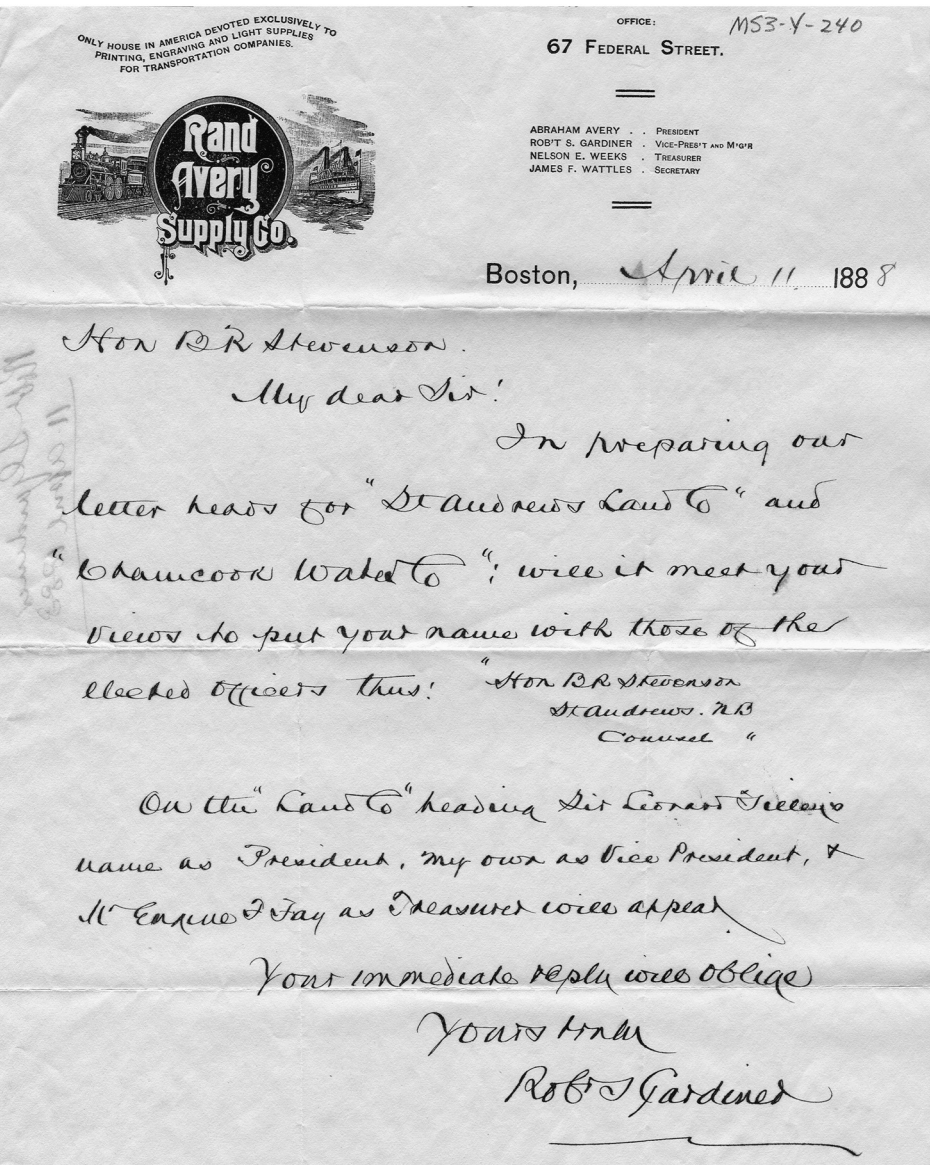 MS3-Y-240
ONLY HOUSE IN AMERICA DEVOTED EXCLUSIVELY TO
PRINTING, ENGRAVING AND LIGHT SUPPLIES
FOR TRANSPORTATION COMPANIES.
Rand
Avery
Supply Co.
OFFICE:
67 FEDERAL STREET.
ABRAHAM AVERY . . PRESIDENT
ROB'T S. GARDINER . VICE-PRES'T AND M'G'R
NELSON E. WEEKS . TREASURER
JAMES F. WATTLES . SECRETARY
Boston, April 11 1888
Hon B R Stevenson.
My dear Sir!
In preparing our
letter heads for "St Andrews Land Co" and
"Chamcook Water Co"; will it meet your
views to put your name with those of the
elected officers thus: "Hon B R Stevenson
St Andrews. N B
Counsel "
On the "Land Co" heading Sir Leonard Tilley's
name as President, my own as Vice President, &
Mr Eugene F Fay as Treasurer will appear
Your immediate reply will oblige
Yours truly
Robt S Gardiner
11 April 1888